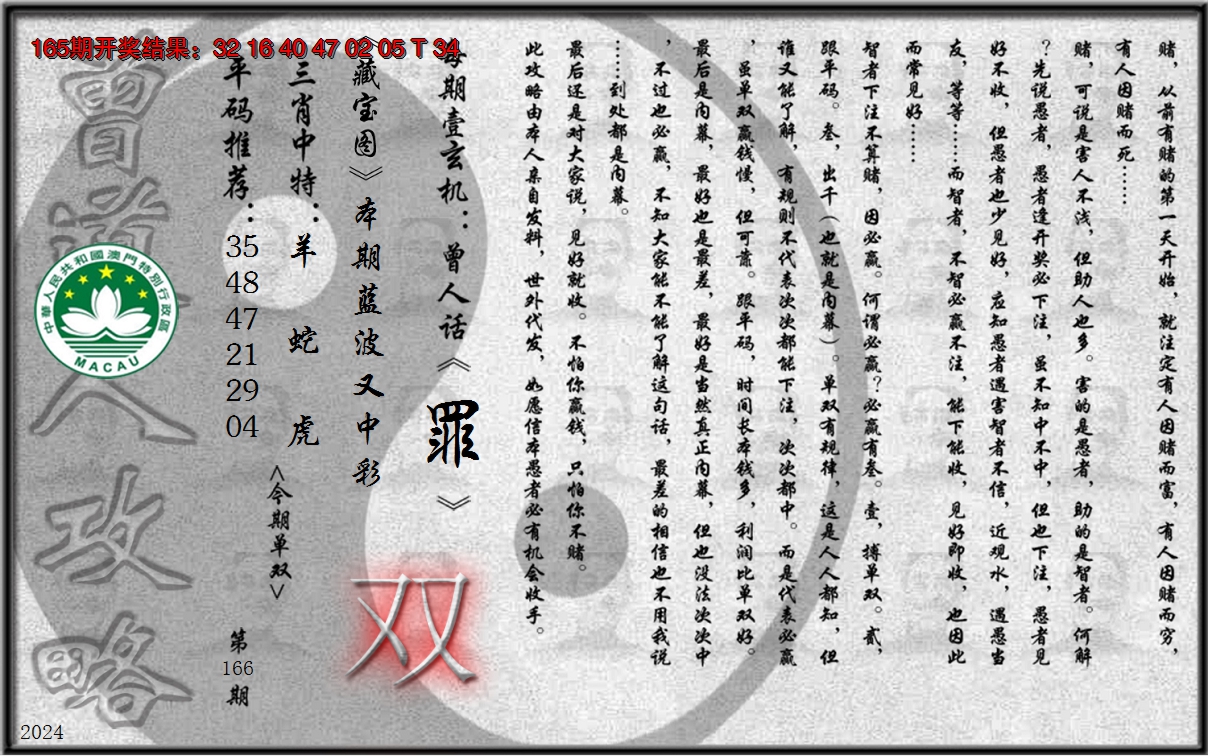 165期开奖结果：32 16 40 47 02 05 T 34
赌，从前有赌的第一天开始，就注定有人因赌而富，有人因赌而穷，
有人因赌而死……
赌，可说是害人不浅，但助人也多。害的是愚者，助的是智者。何解
？先说愚者，愚者逢开奖必下注，虽不知中不中，但也下注，愚者见
好不收，但愚者也少见好，应知愚者遇害智者不信，近观水，遇愚当
友，等等……而智者，不智必赢不注，能下能收，见好即收，也因此
而常见好……
智者下注不算赌，因必赢。何谓必赢？必赢有叁。壹，搏单双。贰，
跟平码。叁，出千（也就是内幕）。单双有规律，这是人人都知，但
谁又能了解，有规则不代表次次都能下注，次次都中。而是代表必赢
，虽单双赢钱慢，但可靠。跟平码，时间长本钱多，利润比单双好。
最后是内幕，最好也是最差，最好是当然真正内幕，但也没法次次中
，不过也必赢，不知大家能不能了解这句话，最差的相信也不用我说
……到处都是内幕。
最后还是对大家说，见好就收。不怕你赢钱，只怕你不赌。
此攻略由本人亲自发料，世外代发，如愿信本愚者必有机会收手。
每期壹玄机：曾人话《罪》
《藏宝图》本期蓝波又中彩
双
三肖中特：羊 蛇 虎
<今期单双>
平码推荐：35 48 47 21 29 04
第166期
曾道人攻略
中華人民共和國澳門特別行政區
MACAU
2024